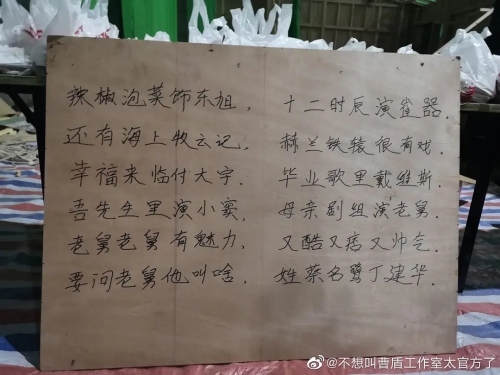 辣椒泡菜饰东姐，十二时辰演雀器。
还有海上牧云记，赫兰铁辕很有戏。
幸福来临付大宇，毕业歌里戴维斯。
吾先生里演小窦，母亲剧组演老舅。
老舅老舅有魅力，又酷又痞又帅气。
要问老舅他叫啥，姓菜名鹭丁建华。
@不想叫曹盾工作室太官方了